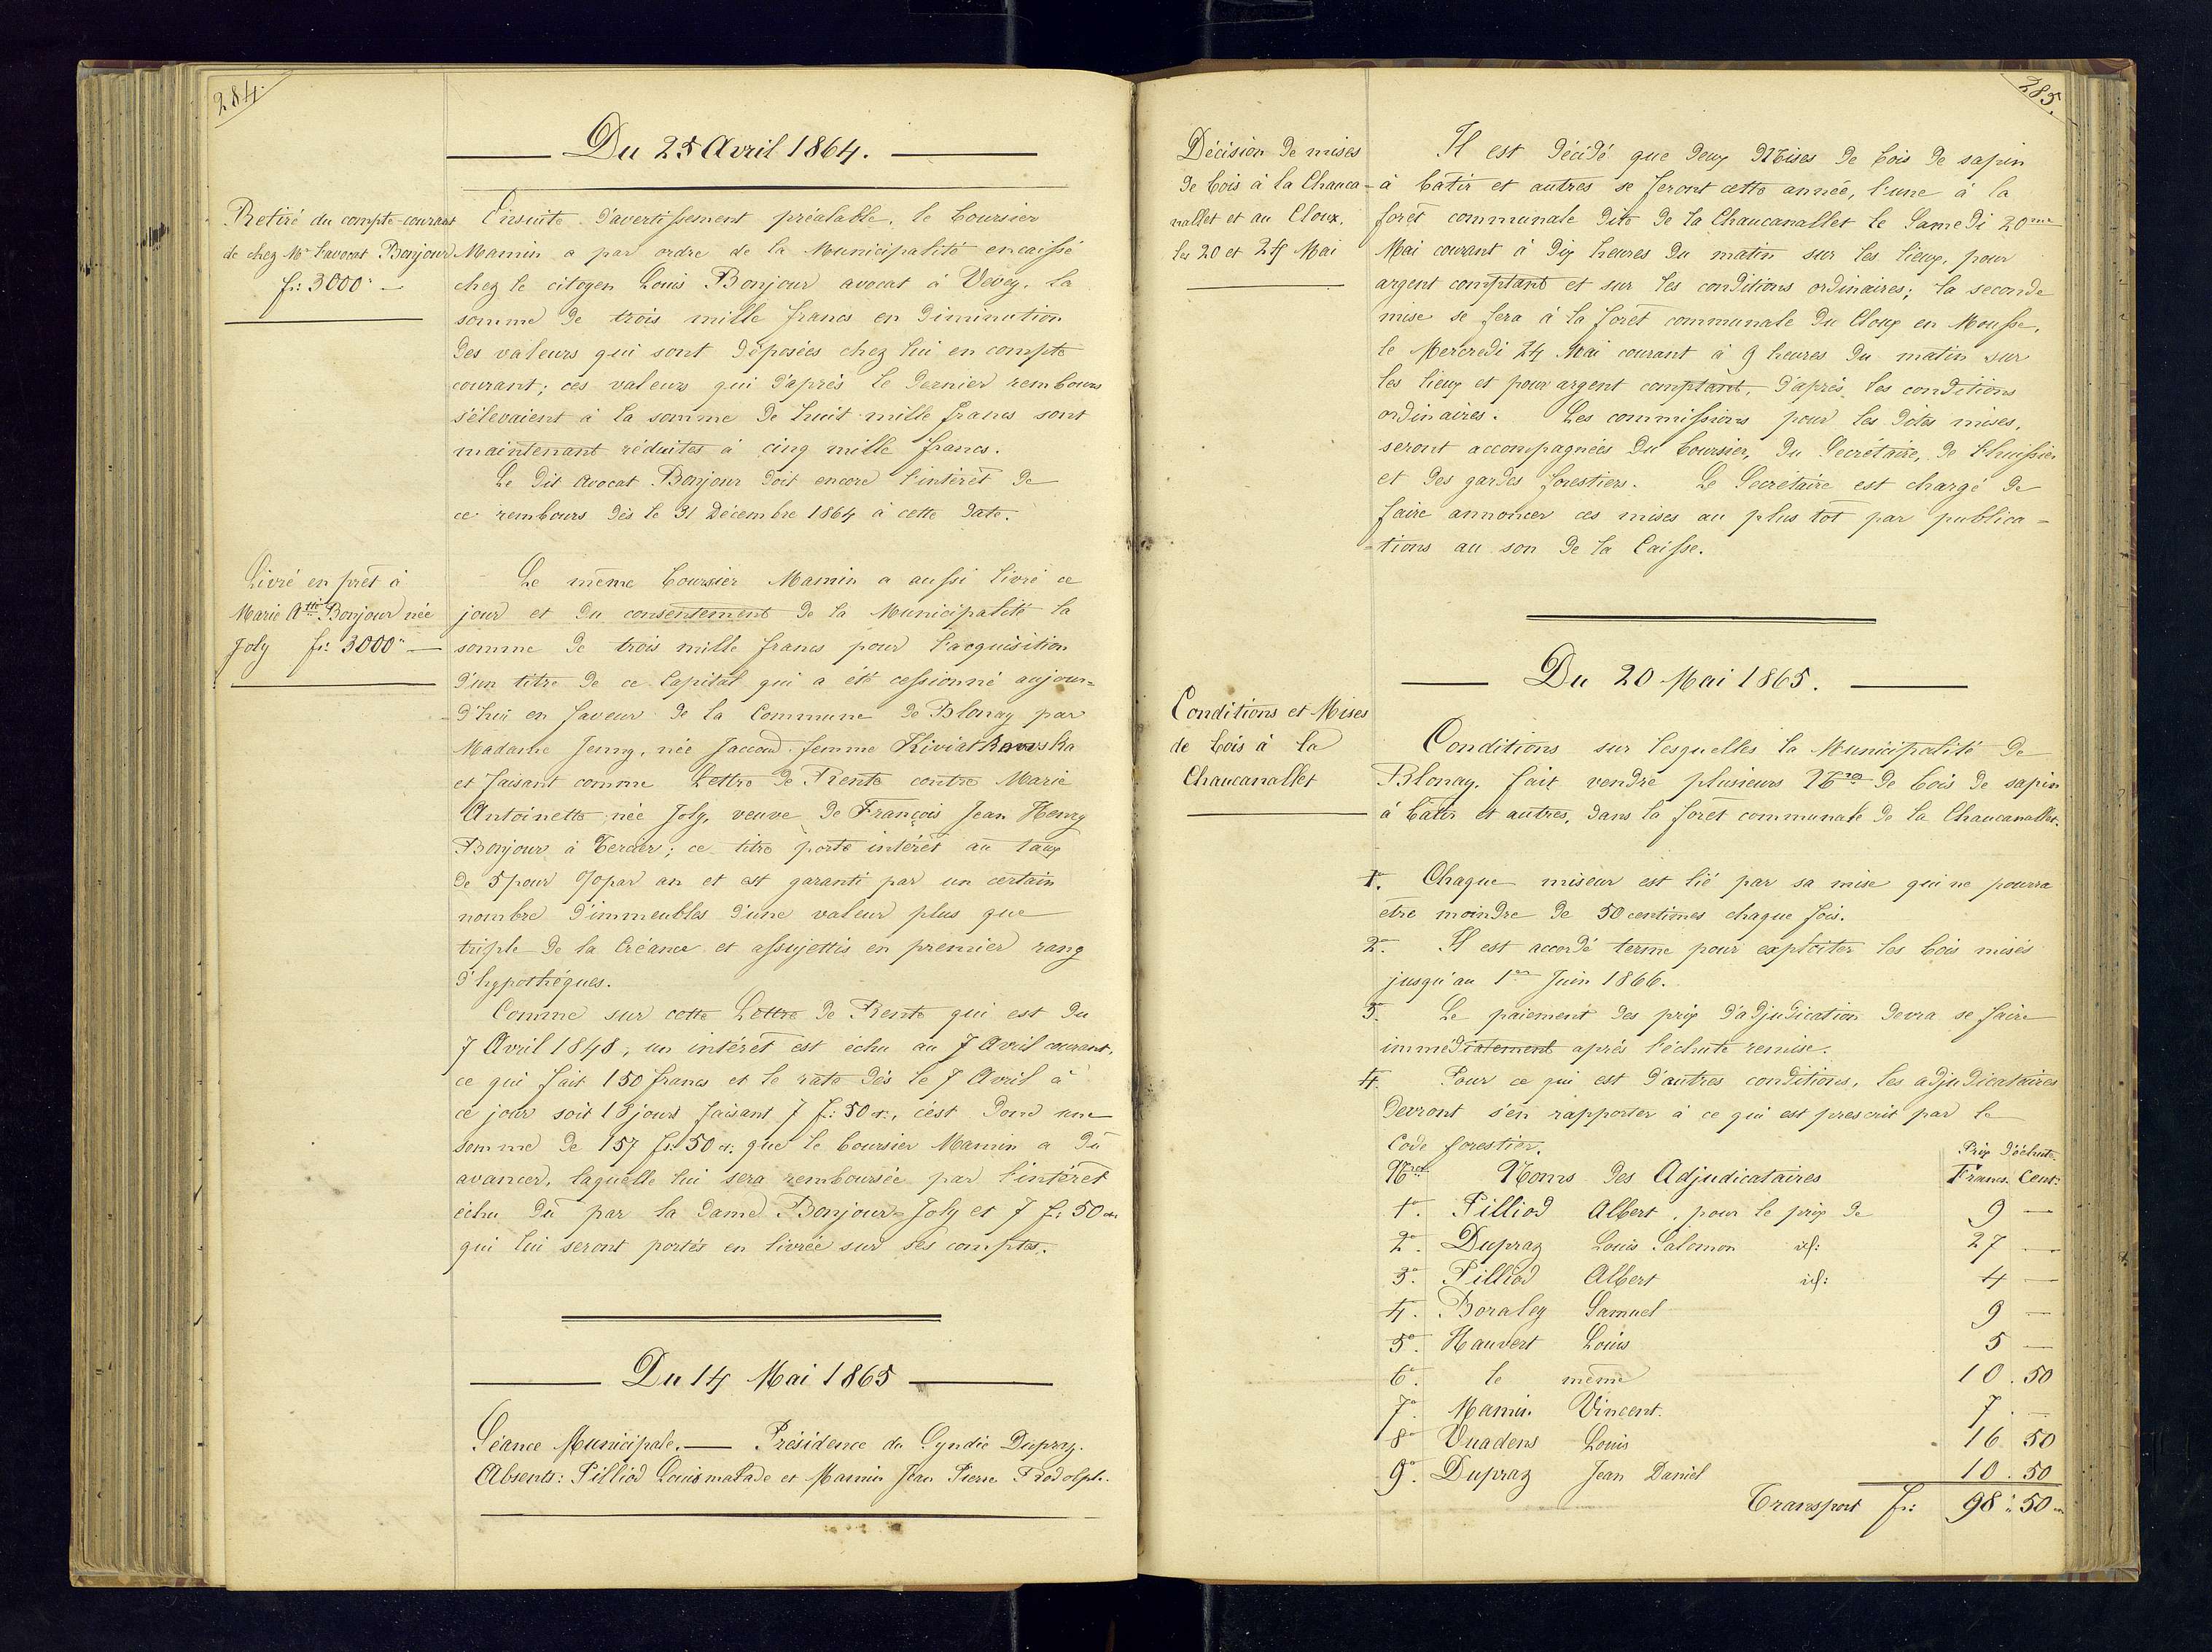 284.
Du 25 Avril 1864.
Retiré du compte-courant
de chez Mr l'avocat Bonjour
fr: 3000 " —
Ensuite d'avertissement préalable, le boursier
Mamin a par ordre de la Municipalité encaissé
chez le citoyen Louis Bonjour avocat à Vevey, la
somme de trois mille francs en diminution
des valeurs qui sont déposées chez lui en compte
courant; ces valeurs qui d'après le dernier rembours
s'élevaient à la somme de huit mille francs sont
maintenant réduites à cinq mille francs.
Le dit avocat Bonjour doit encore l'intérêt de
ce rembours dès le 31 Décembre 1864 à cette date.
Livré en prêt à
Marie Atte Bonjour née
Joly fr: 3000 " —
Le même boursier Mamin a aussi livré ce
jour et du consentement de la Municipalité la
somme de trois mille francs pour l'acquisition
d'un titre de ce Capital qui a été cessionné aujour=
=d'hui en faveur de la Commune de Blonay par
Madame Jenny, née Jaccoud femme Kiviatkowska
et faisant comme Lettre de Rente contre Marie
Antoinette née Joly, veuve de François Jean Henry
Bonjour à Tercier; ce titre porte intérêt au taux
de 5 pour %par an et est garanti par un certain
nombre d'immeubles d'une valeur plus que
triple de la Créance et assujettis en premier rang
d'hypothéques.
Comme sur cette Lettre de Rente qui est du
7 Avril 1848, un intérêt est échu au 7 Avril courant,
ce qui fait 150 francs et le rate dès le 7 Avril à
ce jour soit 18 jours faisant 7 f: 50 c:, c'est donc une
somme de 157 fr: 50 c: que le boursier Mamin a dû
avancer, laquelle lui sera remboursée par l'intérêt
échu dû par la dame Bonjour=Joly et 7 f: 50 c:
qui lui seront portés en livrée sur ses comptes.
Du 14 Mai 1865
Séance Municipale. — Présidence du Syndic Dupraz.
Absents: Pilliod Louis malade et Mamin Jean Pierre Rodolph.
285.
Décision de mises
de bois à la Chauca=
nallet et au Cloux.
les 20 et 24 Mai
Il est décidé que deux Mises de bois de sapin
à bâtir et autres se feront cette année, l'une à la
forêt communale dite de la Chaucanallet le Samedi 20me
Mai courant à dix heures du matin sur les lieux, pour
argent comptant et sur les conditions ordinaires; la seconde
mise se fera à la forêt communale du Cloux en Mousse,
le Mercredi 24 Mai courant à 9 heures du matin sur
les lieux et pour argent comptant, d'après les conditions
ordinaires. Les commissions pour les dites mises,
seront accompagnées du boursier, du Secrétaire, de l'huissier
et des gardes forestiers. Le Secrétaire est chargé de
faire annoncer ces mises au plus tôt par publica=
=tions au son de la Caisse.
Du 20 Mai 1865.
Conditions et Mises
de bois à la
Chaucanallet
Conditions sur lesquelles la Municipalité de
Blonay, fait vendre plusieurs Nros de bois de sapin
à bâtir et autres, dans la forêt communale de la Chaucanallet.
1o. Chaque miseur est lié par sa mise qui ne pourra
être moindre de 50 centimes chaque fois.
2o. Il est accordé terme pour exploiter les bois misés
jusqu'au 1er Juin 1866.
3o. Le paiement des prix d'adjudication devra se faire
immédiatement après l'échute remise.
4o. Pour ce qui est d'autres conditions, les adjudicataires
devront s'en rapporter à ce qui est prescrit par le
Code forestier.
Prix d'échute
Nros Noms des Adjudicataires Francs. Cent:
1o. Pilliod Albert, pour le prix de 9 —
2o. Dupraz Louis Salomon id: 27 —
3o. Pilliod Albert id: 4 —
4o. Boraley Samuel 9 —
5o. Hauvert Louis 5 —
6o. le même 10 . 50
7o. Mamin Vincent. 7 . —
8o Vuadens Louis 16 50
9o. Dupraz Jean Daniel 10 . 50
Transport fr: 98 " 50